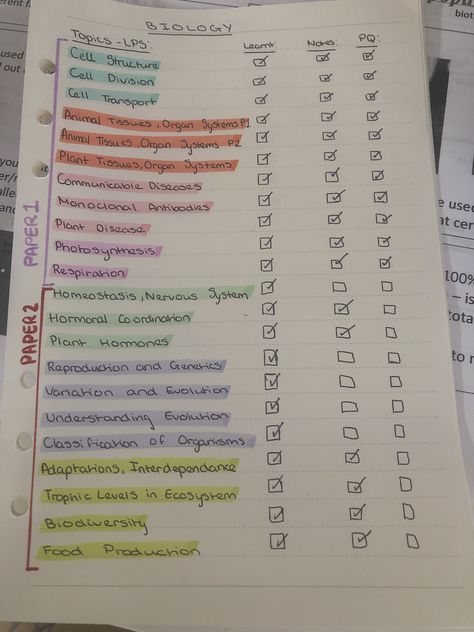 BIOLOGY
Topics - LPS: Learnt: Notes: PQ:
Cell Structure
Cell Division
Cell Transport
Animal Tissues, Organ Systems P1
Animal Tissues, Organ Systems P2
Plant Tissues, Organ Systems
Communicable Diseases
Monoclonal Antibodies
Plant Disease
Photosynthesis
Respiration
PAPER 1
Homeostasis, Nervous System
Hormonal Co-ordination
Plant Hormones
Reproduction and Genetics
Variation and Evolution
Understanding Evolution
Classification of Organisms
Adaptations, Interdependance
Trophic Levels in Ecosystem
Biodiversity
Food Production
PAPER 2
used
100%